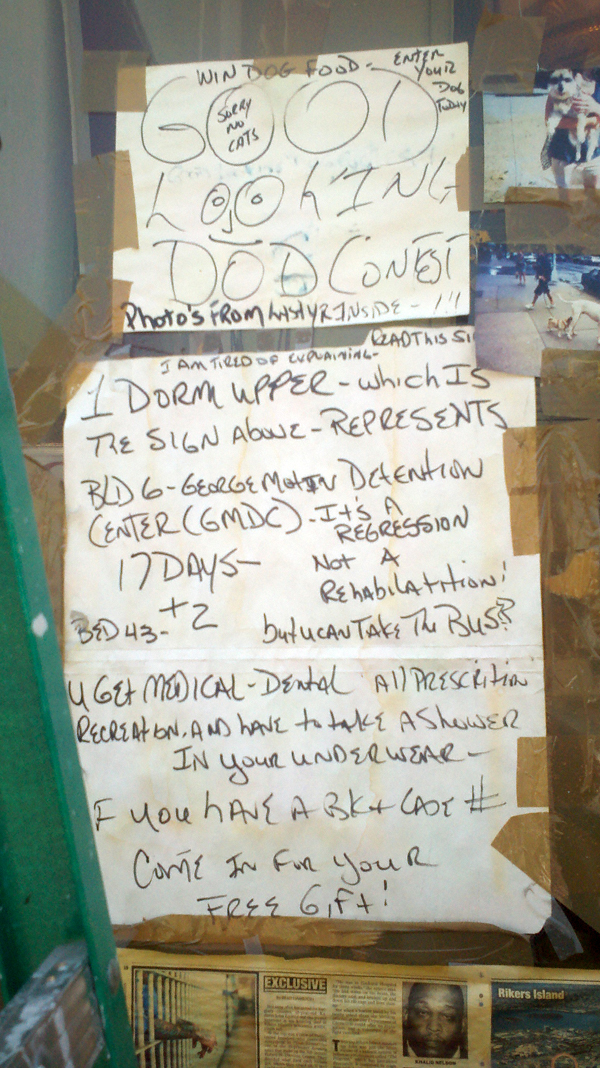 WIN DOG FOOD - ENTER YOUR DOG TODAY
GOOD
SORRY
NO
CATS
LOOKING
DOD CONEST
PHOTO'S FROM LAST YR INSIDE - !!!
READ THIS SI
I AM TIRED OF EXPLAINING -
1 DORM UPPER - WHICH IS
THE SIGN ABOVE - REPRESENTS
BLD 6 - GEORGE MOTIN DETENTION
CENTER (GMDC) - IT'S A
REGRESSION
17 DAYS - NOT A
REHABILATITION!
BED 43 - +2 BUT U CAN TAKE THE BUS?
U GET MEDICAL - DENTAL All PRESCRITION
RECREATION. AND HAVE TO TAKE A SHOWER
IN YOUR UNDERWEAR -
IF YOU HAVE A BK + CASE #
COME IN FOR YOUR
FREE GIFT!
EXCLUSIVE
KHALID NELSON
Rikers Island